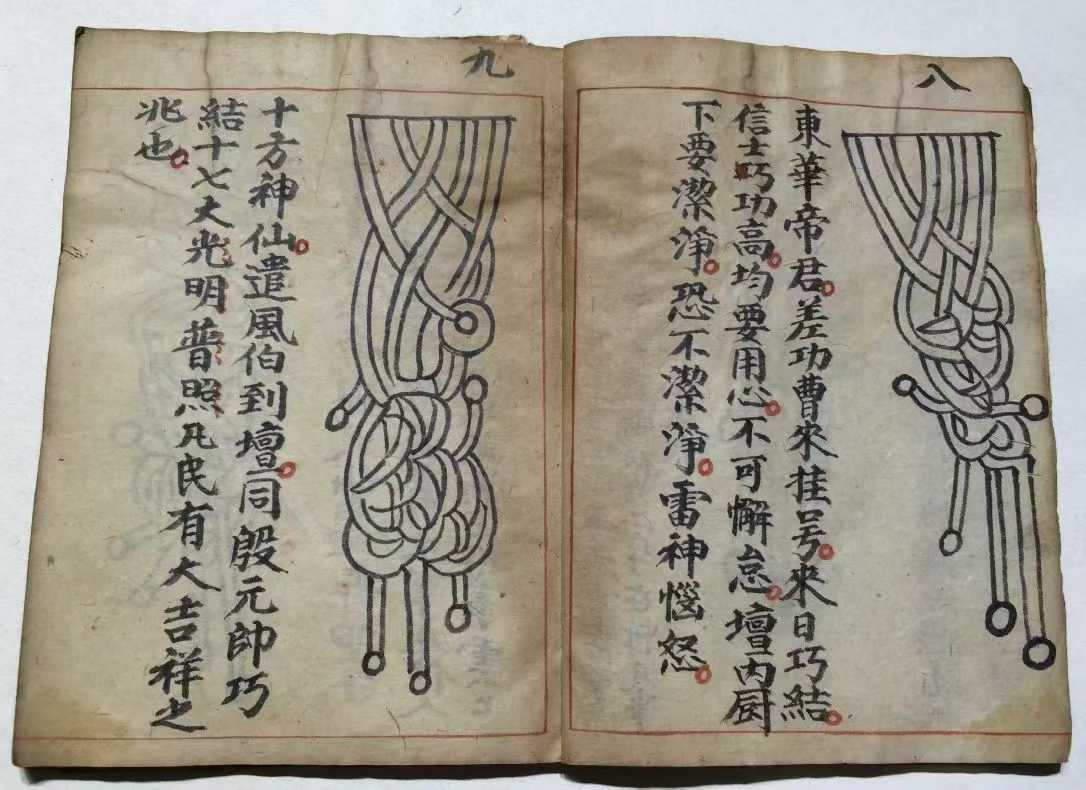 八
東華帝君。差功曹來挂号。來日巧結。
信士巧功高。均要用心。不可懈怠。壇內厨
下要潔淨。恐不潔淨。雷神惱怒。
九
十方神仙。遣風伯到壇。同殷元帥巧
結十七大光明普照凡民有大吉祥之
兆也。